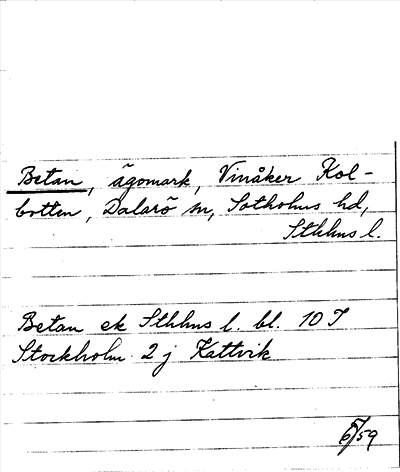 Betan, ägomark, Vinåker Kol-
botten, Dalarö sn, Sotholms hd,
Sthlms l.
Betan ek Sthlms l. bl. 10 I
Stockholm 2 j Kattvik
6/59